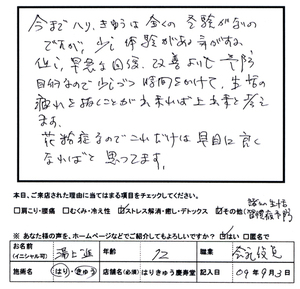 今までハリ、きゅうは全くの経験がないの
ですが、少し体験がある気がする。
但し、早急な回復、改善よりも予防
目的なので少しづつ時間をかけて、生活の
疲れを抜くことが出来れば上出来と考え
ます。
花粉症なのでこれだけは早目に良く
なればと思ってます。
本日、ご来店された理由に当てはまる項目をチェックしてください。
□肩こり・腰痛 □むくみ・冷え性 ☑ストレス解消・癒し・デトックス ☑その他(
※ あなた様の声を、ホームページなどでご紹介してもよろしいですか? ☑はい □匿名で
お名前 (イニシャル可) 湯上 進 年齢 72 職業 会社役員
施術名 はり・きゅう 店舗名(必須) はりきゅう慶寿堂 記入日 09年9月3日